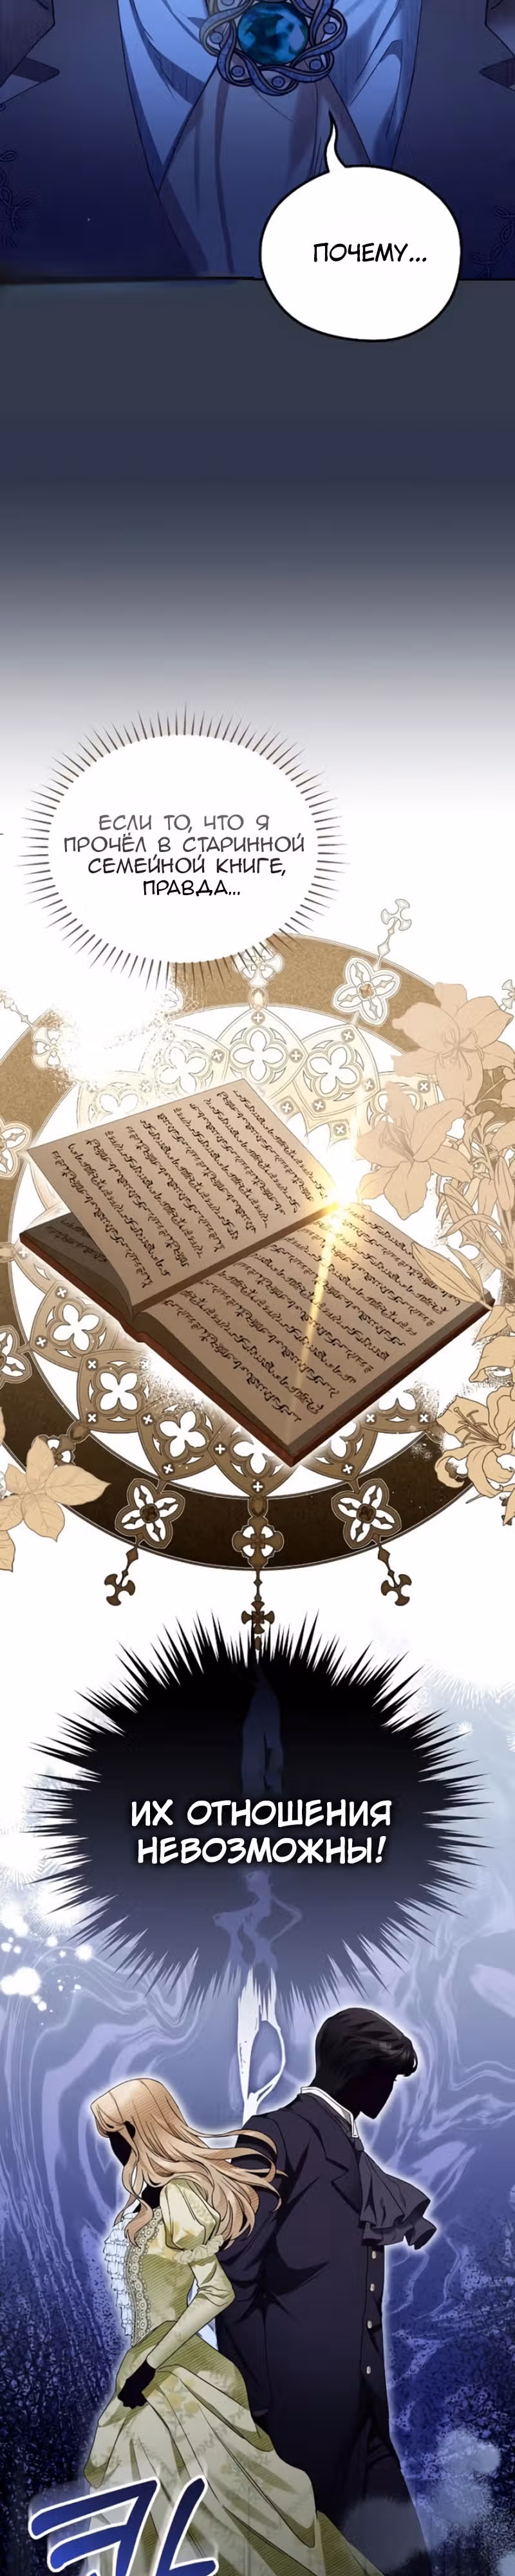 ПОЧЕМУ...
ЕСЛИ ТО, ЧТО Я
ПРОЧЁЛ В СТАРИННОЙ
СЕМЕЙНОЙ КНИГЕ,
ПРАВДА...
ИХ ОТНОШЕНИЯ
НЕВОЗМОЖНЫ!